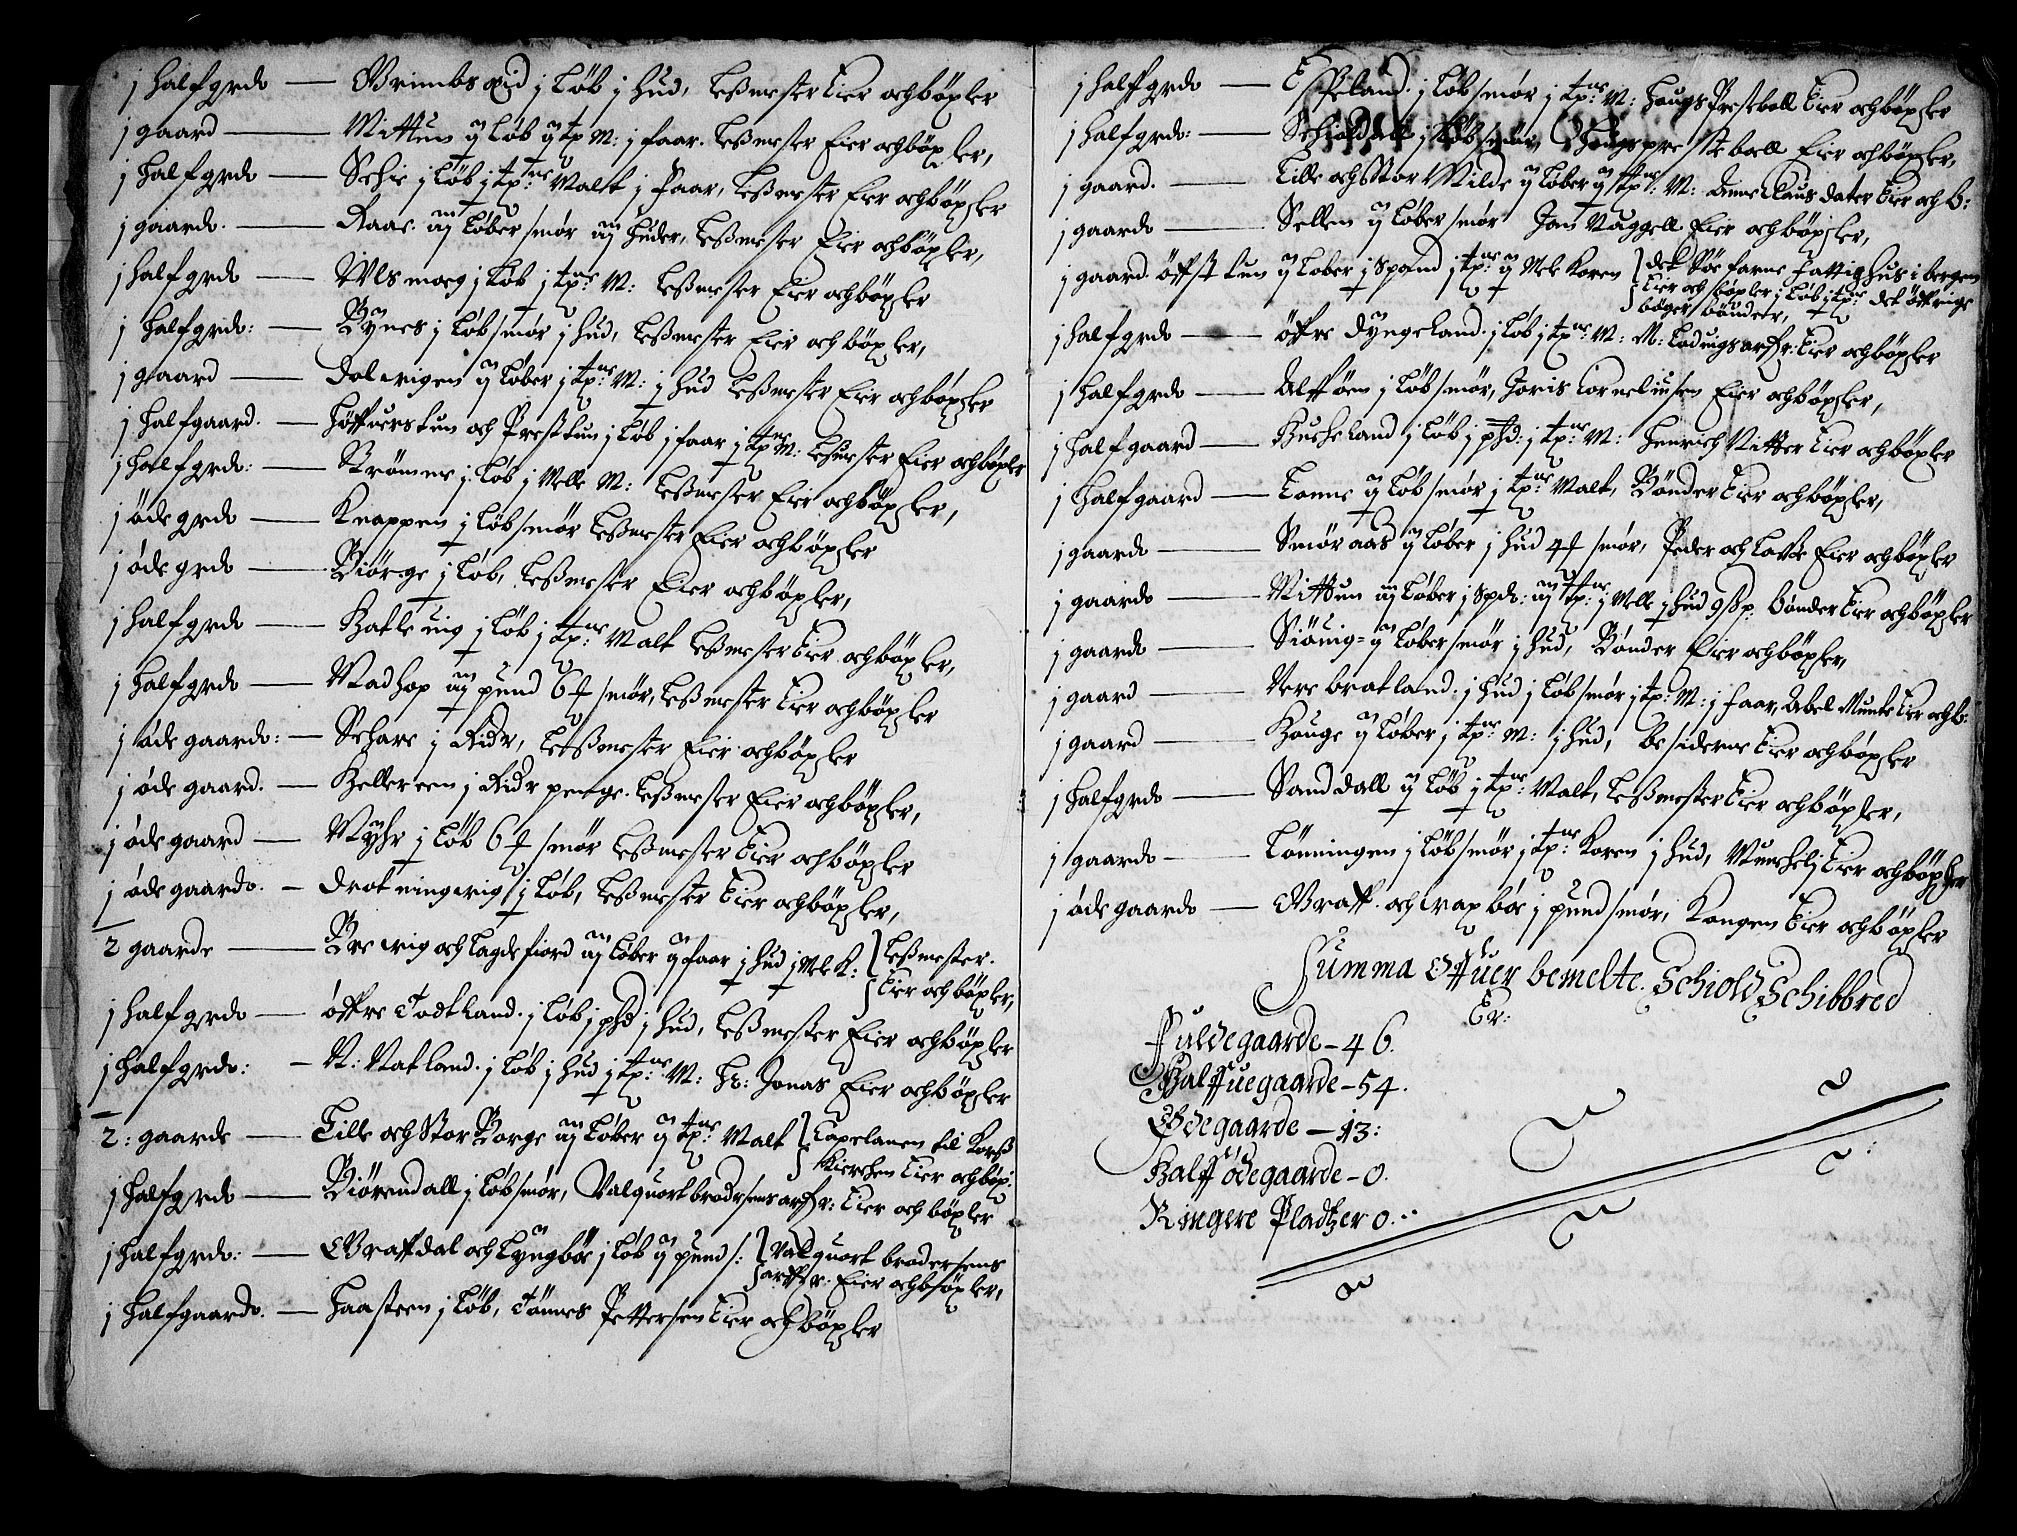 j halfgrdo — Grimbs eid j Løb j hud, Leßmester Eier och böxler
j gaard — Mittun ij Løb ij tp M: j faar. Leßmester Eier och böxler,
j halfgrdo — Schie j Løb j tp:ne Malt j Faar, Leßmester Eier och böxler
j gaardo. — Raae iij Løber smør iij huder, Leßmester Eier och böxler,
j halfgrdo — Ulsmoeg j Løb j tp:ne M: Leßmester Eier och böxler
j halfgrdo: — Bynes j Løb smør j hud, Leßmester Eier och böxler,
j gaard — Dolwigen ij Løber j tp:ne M: j hud Leßmester Eier och böxler
j halfgaard. — Høffuerstun och Presttun j Løb j faar j tp:ne M: Leßmester Eier och böxler
j halfgrdo: — Strømme j Løb j Melle M: Leßmester Eier och böxler,
j öde grdo — Knappen j Løb smør Leßmester Eier och böxler
j öde grdo — Biørge j Løb, Leßmester Eier och böxler,
j halfgrdo — Hatleuig j Løb j tp:ne Malt Leßmester Eier och böxler,
j halfgrdo — Vadhop iij pund 6 # smør, Leßmester Eier och böxler
j öde gaardo: — Schare j Ridr, Leßmester Eier och böxler
j öde gaard. — Helleren j Ridr penge. Leßmester Eier och böxler,
j öde gaard — Myhr j Løb 6 # smør Leßmester Eier och böxler
j öde gaardo. — Drotningwig j Løb, Leßmester Eier och böxler,
2 gaarde — Brewig och Lagdefiord iij Løber ij faar j hud j Mel K: } Leßmester.
Eier och böxler,
j halfgrdo — öffre Todtland. j Løb j phd j hud, Leßmester Eier och böxler
j halfgrdo: — N: Natland. j Løb j hud j tp:ne M: Hr: Jonas Eier och böxler
2: gaarde — Lille och Stor Borge iij Løber ij tp:ne Malt } Capelanen til Korß
Kierchen Eier och böx:
j halfgrdo — Biørendall j Løb smør, Valquort brodrsens arfr: Eier och böxler
j halfgrdo: — Graffdal och Lyngböe j Løb ij pund s: } Valquort brodersens
arffr. Eier och böxler,
j halfgaardo. — Haasteen j Løb, Tönnes Pettersen Eier och böxler
j halfgrdo — Espeland. j Løb smør j tp:ne M: Haugs Prestboll Eier och böxler
j halfgrdo: — Schioldall j Løb smør, Haugs prestboell Eier och böxler,
j gaard. — Lille och Stor Milde ij Løber ij tp:ne M: Anne Claus dater Eier och b:
j gaardo — Sellen ij Løber smør Jan Naggell Eier och böxler,
j gaard. öffst tun ij Løber j Spand j tp:ne ij Mel Koren } det Söefarne Fattighus i bergen
Eier och böxler j Løb j tp:ne det öffrige
böxger bönder,
j halfgrdo — öffre Dyngeland. j Løb j tp:ne M: M: Ladings arffr: Eier och böxler
j halfgrdo — Alff öen j Løb smør, Joris Corneliusen Eier och böxler,
j halfgaard — Bircheland j Løb j phd: j tp:ne M: Henrich Vitter Eier och böxler
j halfgaard — Tonne ij Løb smør j tp:ne Malt, Bönder Eier och böxler,
j gaardo — Smøraas ij Løber j hud 4 # smør, Peder och Lasse Eier och böxler
j gaardo — Mittun iij Løber j Spd: iij tp:ne j Melle j hud 9 ß p: bönder Eier och böxler
j gaardo — Siöuig= ij Løber smør j hud, Bönder Eier och böxler,
j gaard — Nere bratland. j hud j Løb smør j tp: M: j faar, Abel Munte Eier och b:
j gaard — Hauge ij Løber j tp:ne M: j hud, besiderne Eier och böxler
j halfgrdo — Sanddall ij Løb j tp:ne Malt, Leßmester Eier och böxler,
j gaardo — Lönningen j Løb smør j tp:ne Koren j hud, Munchelj Eier och böxler
j öde gaardo — Graff. och Crapböe j pund smør, Kongen Eier och böxler
Summa Offuer bemelte. Schiold Schibbred
Er:
Fuldegaarde – 46.
Halffuegaarde – 54.
Ødegaarde – 13:
Halff ödegaarde – 0.
Ringere Pladtzer 0.